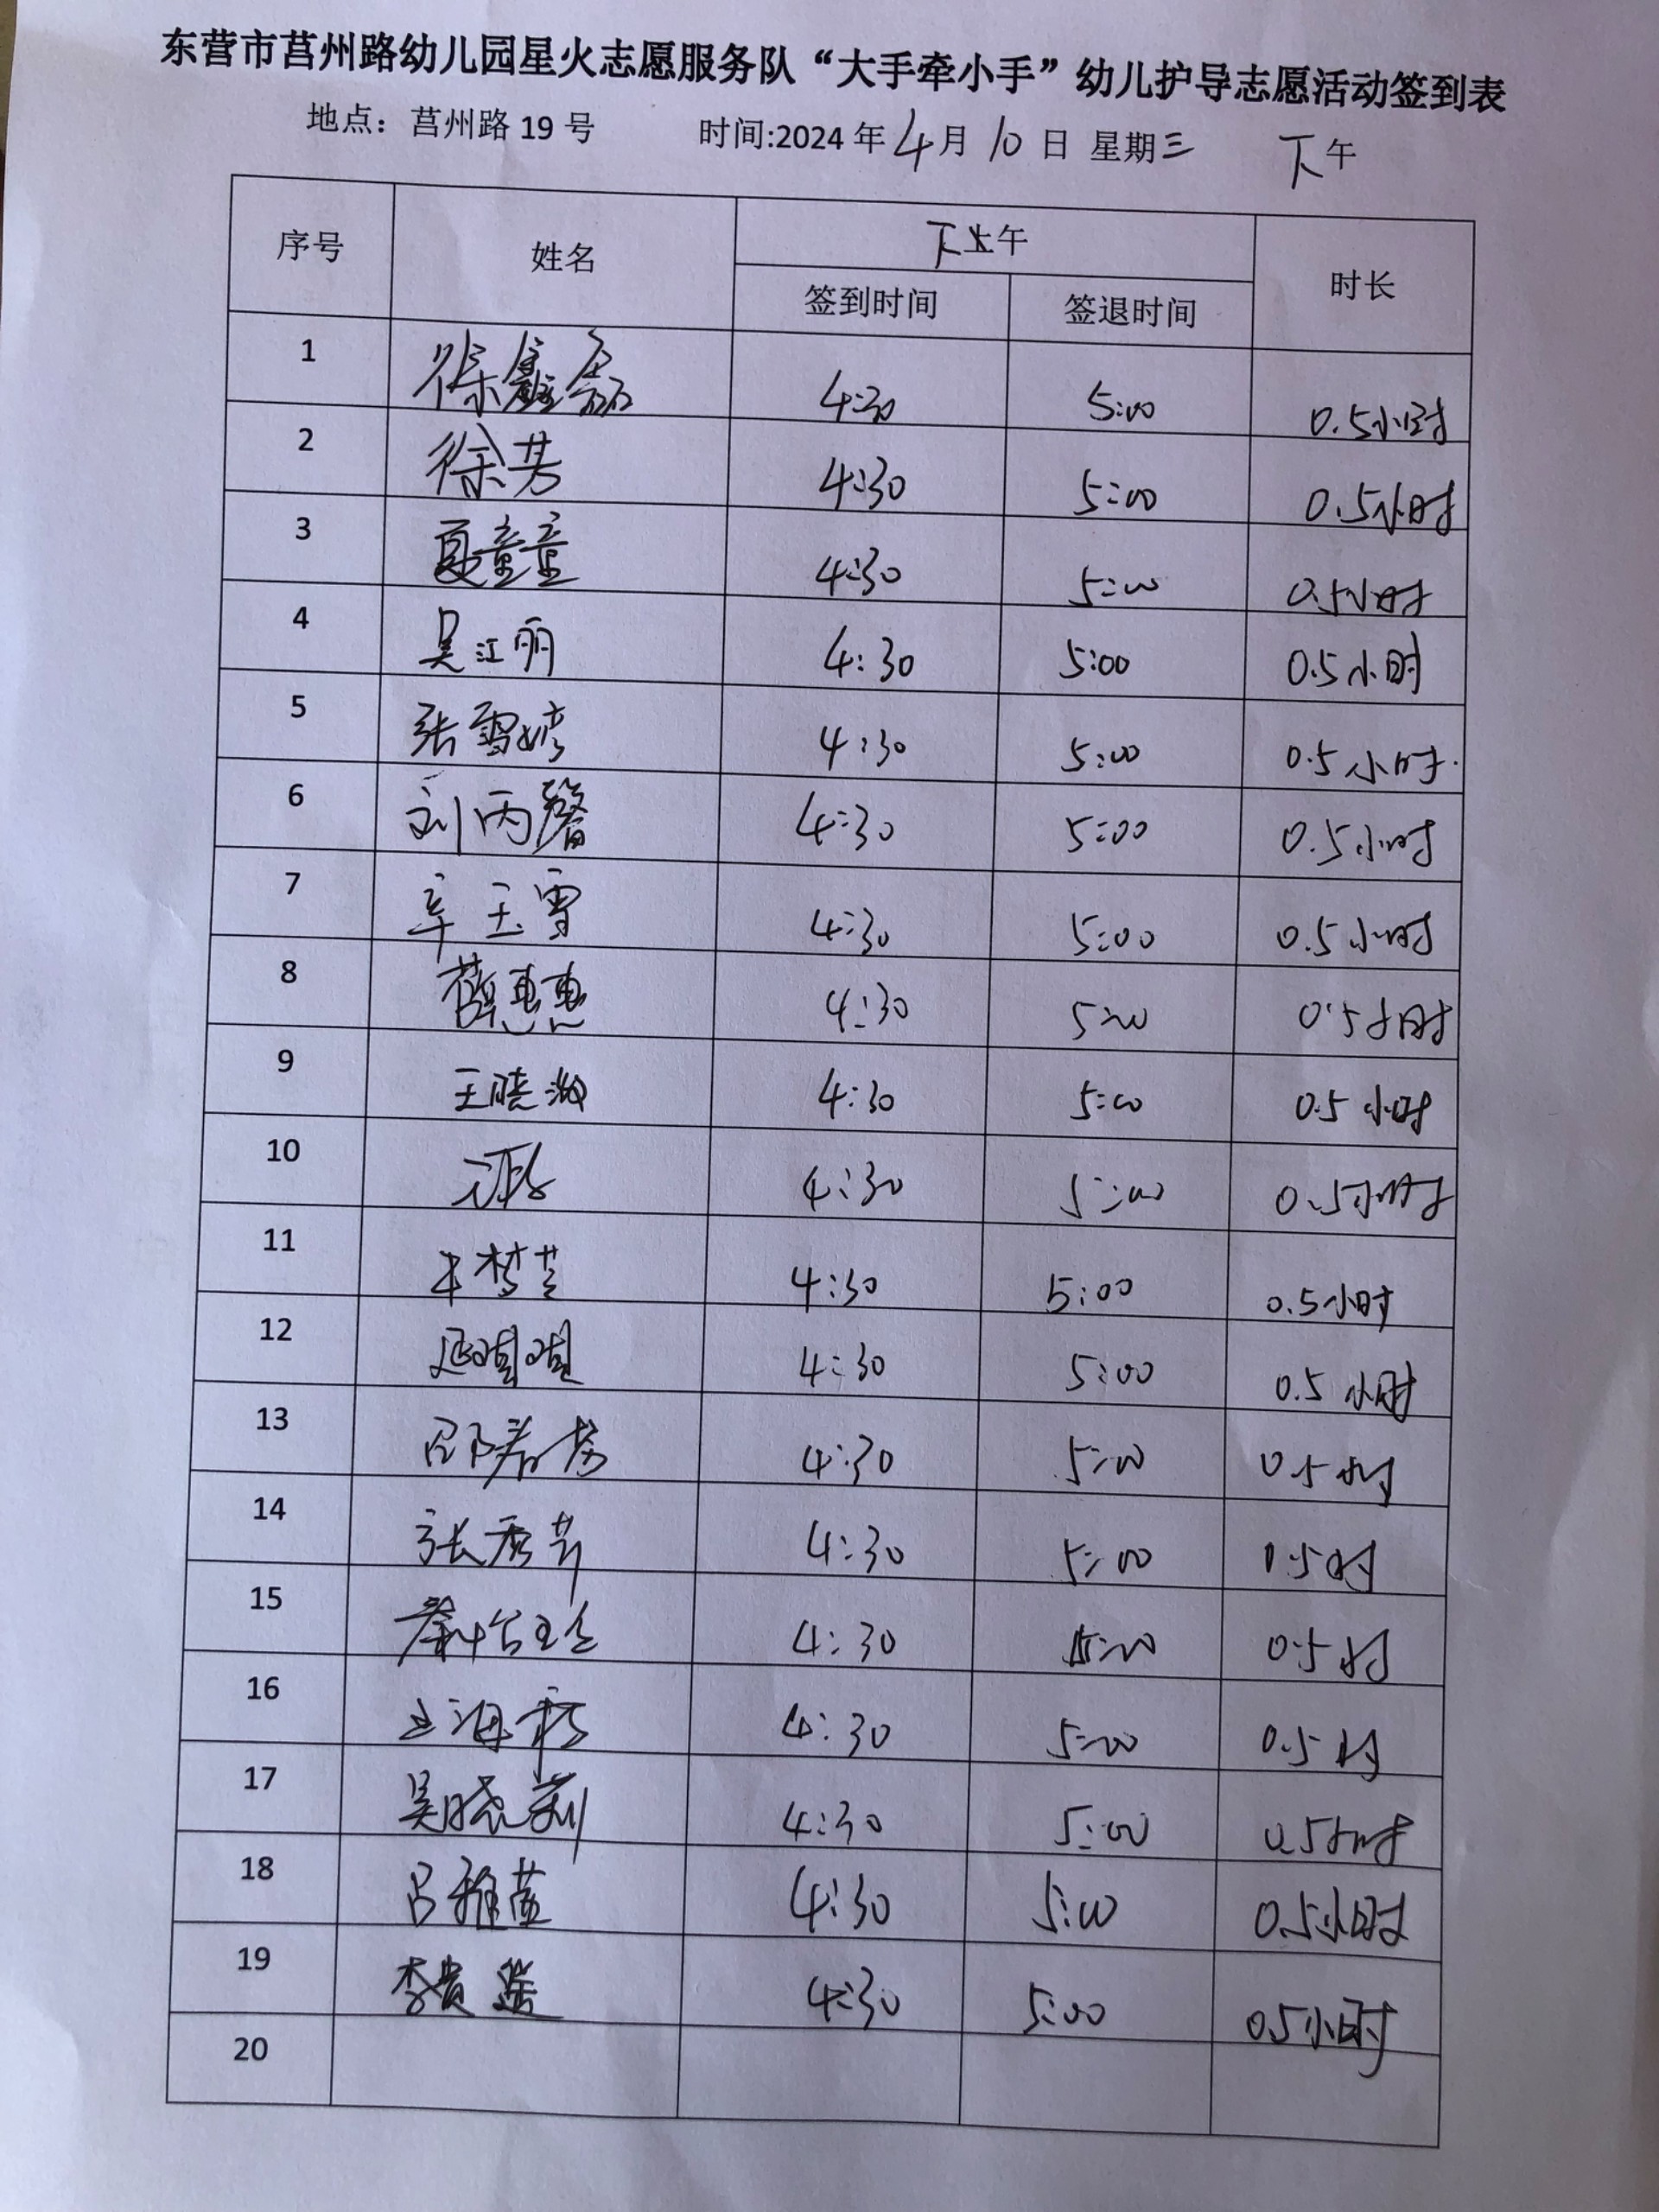 东营市莒州路幼儿园星火志愿服务队“大手牵小手”幼儿护导志愿活动签到表
地点：莒州路 19 号 时间:2024 年 4 月 10 日 星期三 下午
序号 姓名 下午 时长
签到时间 签退时间
1 徐鑫磊 4:30 5:00 0.5小时
2 徐芳 4:30 5:00 0.5小时
3 夏童童 4:30 5:00 0.5小时
4 吴江丽 4:30 5:00 0.5小时
5 张雪婷 4:30 5:00 0.5小时.
6 刘丙馨 4:30 5:00 0.5小时
7 辛玉雪 4:30 5:00 0.5小时
8 薛惠惠 4:30 5:00 0.5小时
9 王晓 4:30 5:00 0.5小时
10 4:30 5:00 0.5小时
11 梦兰 4:30 5:00 0.5小时
12 延琪琪 4:30 5:00 0.5小时
13 邵春 4:30 5:00 0.5小时
14 张秀芹 4:30 5:00 0.5时
15 4:30 5:00 0.5时
16 王海 4:30 5:00 0.5时
17 吴晓莉 4:30 5:00 0.5小时
18 吕雅 4:30 5:00 0.5小时
19 李贵 4:30 5:00 0.5小时
20